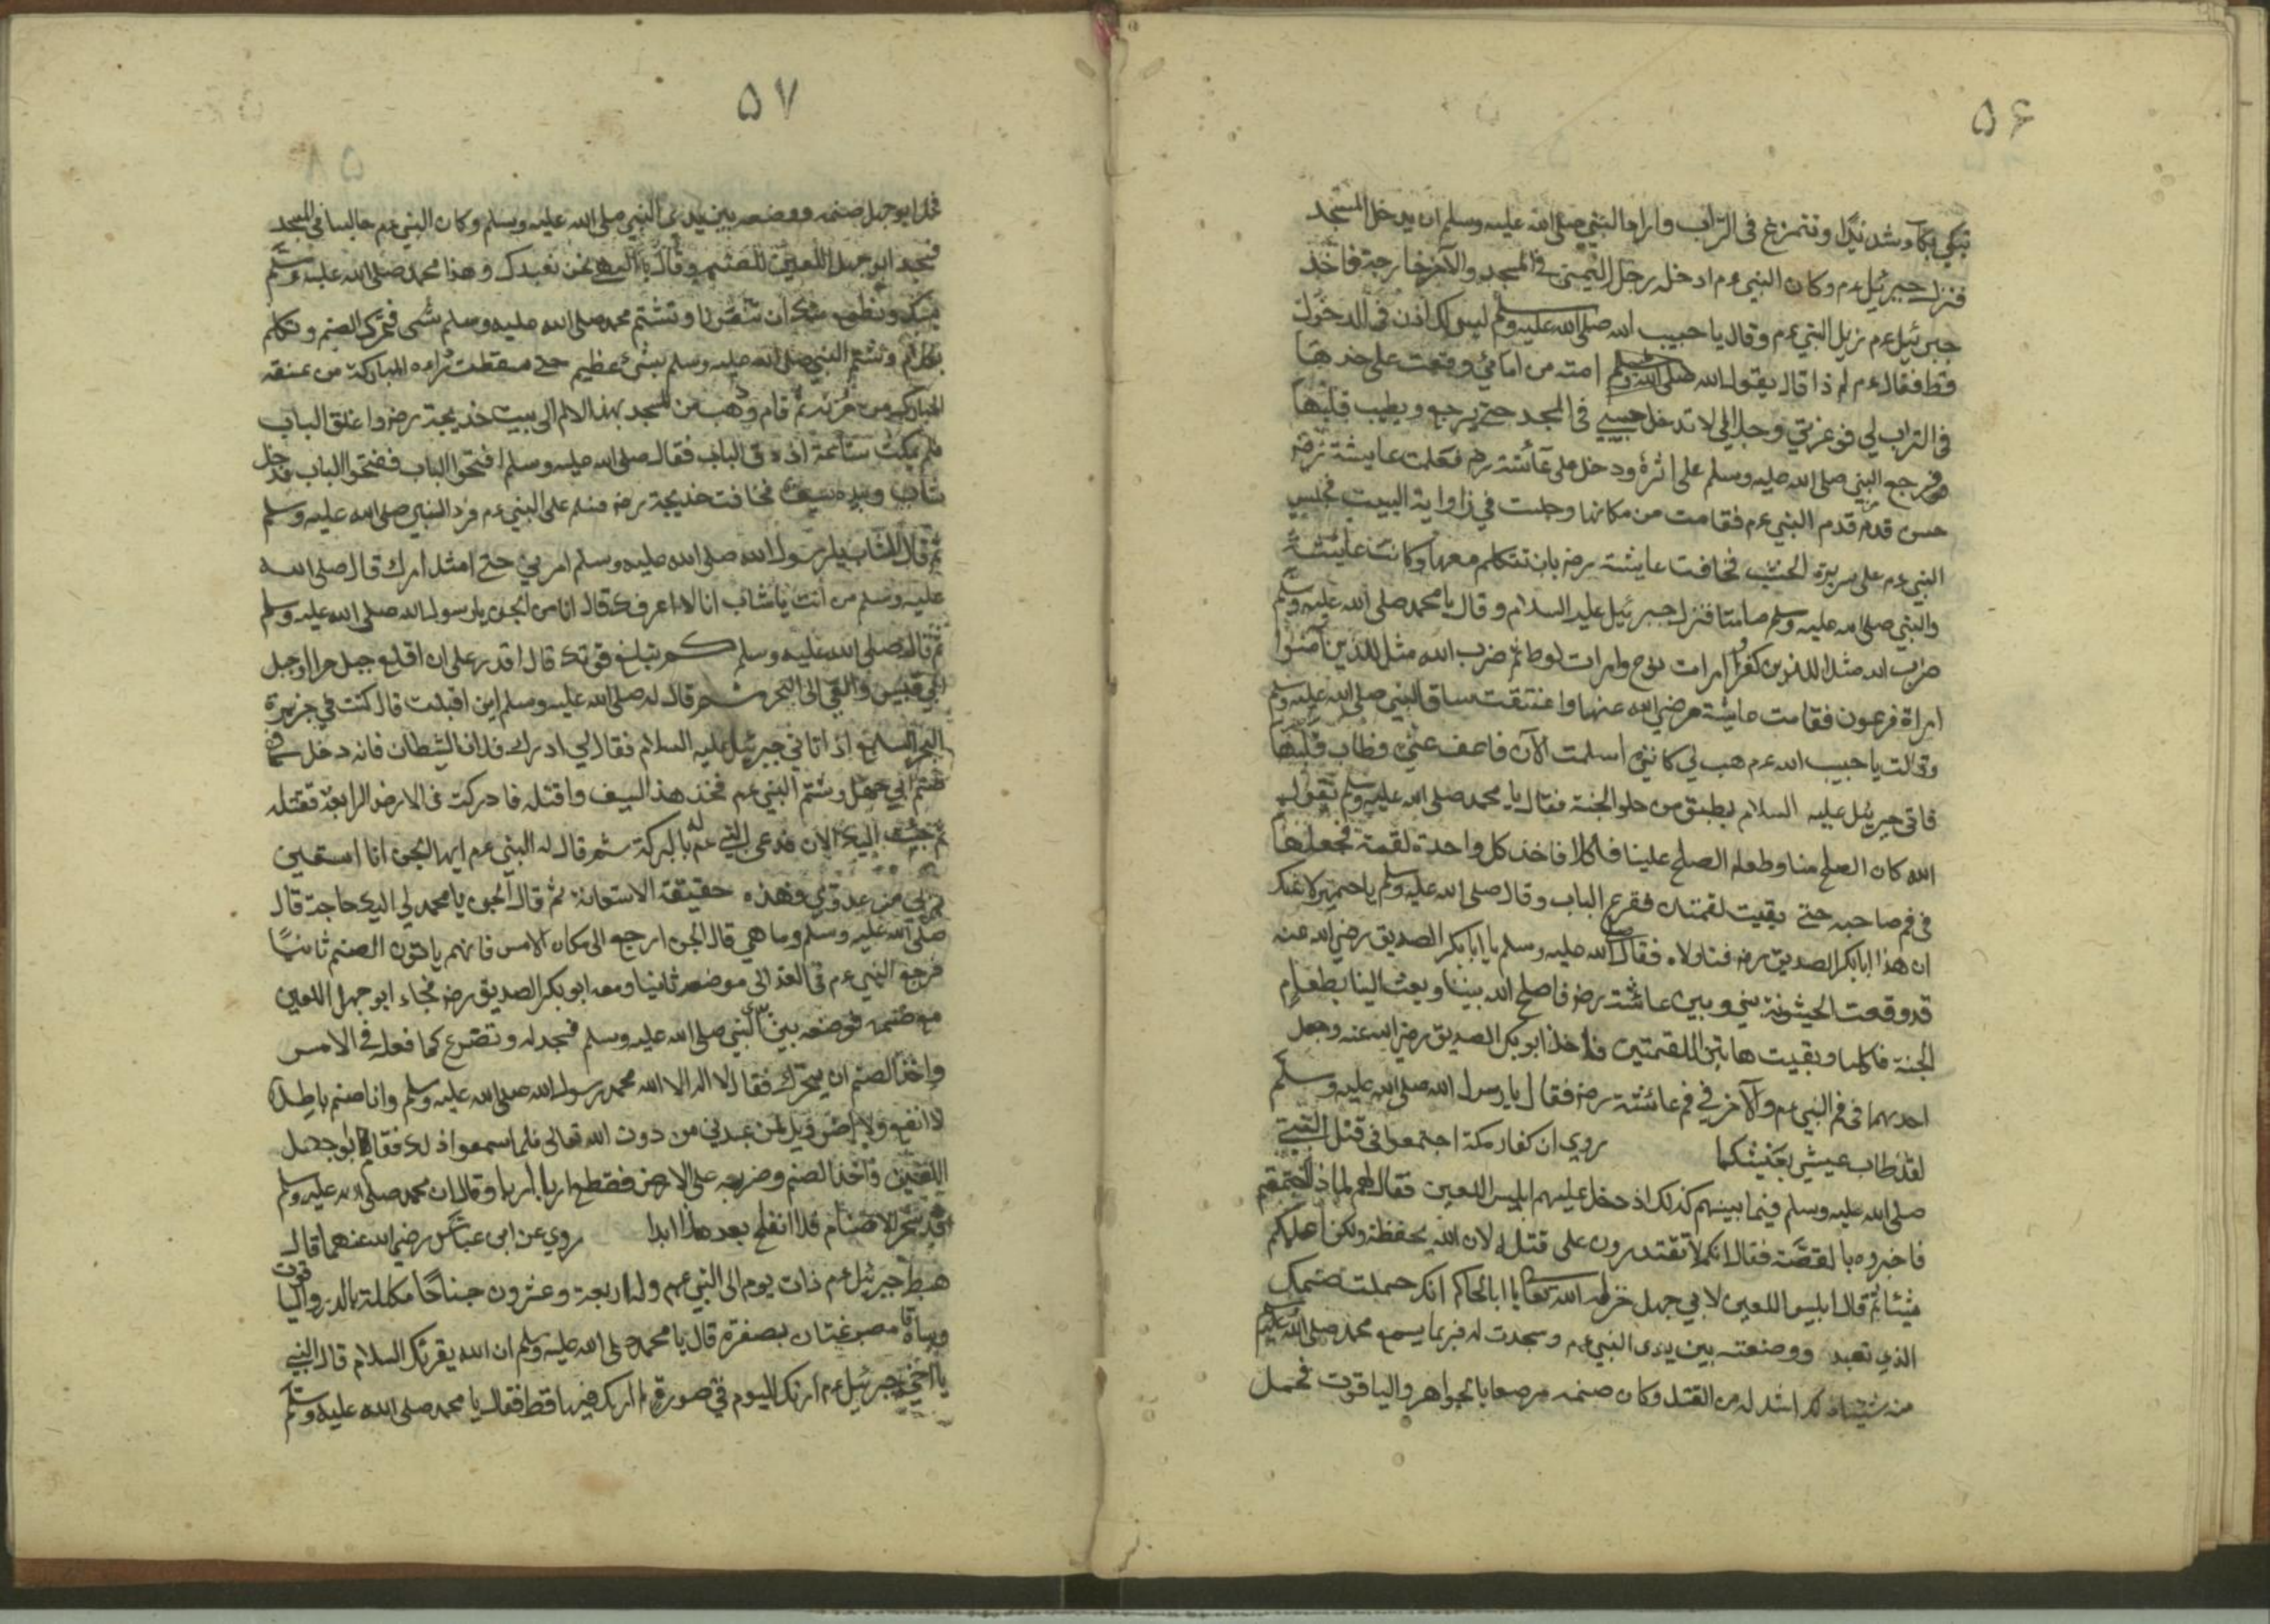 ۵۶
تبكي بكآء شديدًا وتتمرغ فى التراب واراد النبي صلى الله عليه وسلم ان يدخل المسجد
فنزل جبرئيل عم وكان النبي عم ادخل رجل اليمنى فى المسجد والآخر خارجة فاخذ
جبرئيل عم ذيل النبي عم وقال يا حبيب الله صلى الله عليه وسلم ليس لك اذن فى الدخول
قط فقال عم لم ذا قال يقول الله صلى الله وسلم امته من امائي وقعت على خدها
فى التراب لي فوعزتي وجلالي لا تدخل حبيبي فى المسجد حتى يرجع ويطيب قلبها
فرجع النبي صلى الله عليه وسلم على اثره ودخل على عائشة رضه فعلمت عايشة رضه
حسن قدم النبي عم فقامت من مكانها وجلست في زاواية البيت فجلس
النبي عم على سريرة الخشب فخافت عايشة رضه بان تتكلم معها وكانت عايشة
والنبي صلى الله عليه وسلم صامتا فنزل جبرئيل عليه السلام وقال يا محمد صلى الله عليه وسلم
ضرب الله مثلا للذين كفروا امرات نوح وامرات لوط ثم ضرب الله مثل للذين آمنوا
امراة فرعون فقامت عايشة رضي الله عنها واعتنقت ساق النبي صلى الله عليه وسلم
وقالت يا حبيب الله عم هب لي كانني اسلمت الآن فاعف عني فطاب قلبها
فاتى جبرئيل عليه السلام بطبق من حلو الجنة فقال يا محمد صلى الله عليه وسلم يقول
الله كان الصلح منا وطعام الصلح علينا فاكلا فاخذ كل واحدة لقمة فجعلها
فى فم صاحبه حتى بقيت لقمتان فقرع الباب وقال صلى الله عليه وسلم يا حميرا
ان هذا ابا بكر الصديق رضه فناولاه فقال صلى الله عليه وسلم يا ابا بكر الصديق رضي الله عنه
قد وقعت الخشونة بيني وبين عائشة رضه فاصلح الله بيننا وبعث الينا بطعام
الجنة فاكلنا وبقيت هاتين اللقمتين فاخذ ابو بكر الصديق رضي الله عنه وجعل
احديهما فى فم النبي عم والآخر في فم عائشة رضه فقال يا رسول الله صلى الله عليه وسلم
لقد طاب عيشي بعيشكما روي ان كفار مكة اجتمعوا فى قتل النبي
صلى الله عليه وسلم فيما بينهم كذلك اذ دخل عليهم ابليس اللعين فقال لهم لماذا اجتمعتم
فاخبروه بالقصّة فقال انكم لا تقتدرون على قتله لان الله يحفظه ولكن اعلمكم
شيئا ثم قال ابليس اللعين لابي جهل خزله الله تعالى يا ابا الحاكم انك حملت صنمك
الذي تعبد ووضعته بين يدى النبي عم وسجدت له فربما يسمع محمد صلى الله عليه وسلم
منه اشد له من القتل وكان صنمه مرصعا بالجواهر والياقوت فحمل
۵۷
فحمل ابو جهل صنمه ووضعه بين يدى النبي صلى الله عليه وسلم وكان النبي عم جالسا فى المسجد
فسجد ابو جهل اللعين للصنم وقال يا الهي نحن نعبدك وهذا محمد صلى الله عليه وسلم
ونطمع منك ان تنصرنا وتشتم محمد صلى الله عليه وسلم شمى فتحرك الصنم وتكلم
بكلام وشتم النبي صلى الله عليه وسلم بشئ عظيم حتى سقطت رداءه المباركة من عنقه
المباركة من حزنه ثم قام وذهب من المسجد بهذا الالم الى بيت خديجة رضه واغلق الباب
فلم يمكث ساعة اذ دق الباب فقال صلى الله عليه وسلم افتحوا الباب ففتحوا الباب فدخل
شاب وبيده سيف فخافت خديجة رضه فسلم على النبي عم فرد النبي صلى الله عليه وسلم
ثم قال الشاب يا رسول الله صلى الله عليه وسلم امرني حتى امثل امرك قال صلى الله
عليه وسلم من انت يا شاب انا لا اعرفك قال انا من الجن يا رسول الله صلى الله عليه وسلم
ثم قال له صلى الله عليه وسلم كم تبلغ قوتك قال اقدر على ان اقلع جبل حرا وجبل
ابي قبيس والقي الى البحر ثم قال له صلى الله عليه وسلم اين اقبلت قال كنت في جزيرة
البحر السابع اذ اتاني جبرئيل عليه السلام فقال لي ادرك فلان الشيطان فانه دخل فى
صنم ابي جهل وشتم النبي عم فخذ هذ السيف واقتله فادركت فى الارض الرابعة فقتله
ثم جئت اليك الان فدعى النبي عم له بالبركة ثم قال له النبي عم ايها الجن انا استعين
بربي من عدوي فهذه حقيقة الاستعانة ثم قال الجن يا محمد لي اليك حاجة قال
صلى الله عليه وسلم وما هي قال الجن ارجع الى مكان الامس فانهم ياتون الصنم ثانيًا
فرجع النبي عم فى الغد الى موضعه ثانيا ومعه ابو بكر الصديق رضه فجاء ابو جهل اللعين
مع صنمه فوضعه بين يدى النبي صلى الله عليه وسلم فسجد له وتضرع كما فعله فى الامس
واخذ الصنم ان يتحرك فقال لا اله الا الله محمد رسول الله صلى الله عليه وسلم وانا صنم باطل
لا انفع ولا اضر ويل لمن عبدني من دون الله تعالى فلما سمعوا ذلك فقام ابو جهل
اللعين فاخذ الصنم وضربه على الارض فقطع اربا اربا وقال ان محمد صلى الله عليه وسلم
قد سحر الاصنام فلا انفلح بعد هذا ابدا روي عن ابن عباس رضي الله عنهما قال
هبط جبرئيل عم ذات يوم الى النبي عم وله اربعة وعشرون جناحًا مكللة بالدر والياقوت
وساقاه مصبوغتان بصفرة قال يا محمد صلى الله عليه وسلم ان الله يقرئك السلام قال النبي
يا اخي جبرئيل عم ارئك اليوم في صورة لم ارك فيها قط فقال يا محمد صلى الله عليه وسلم